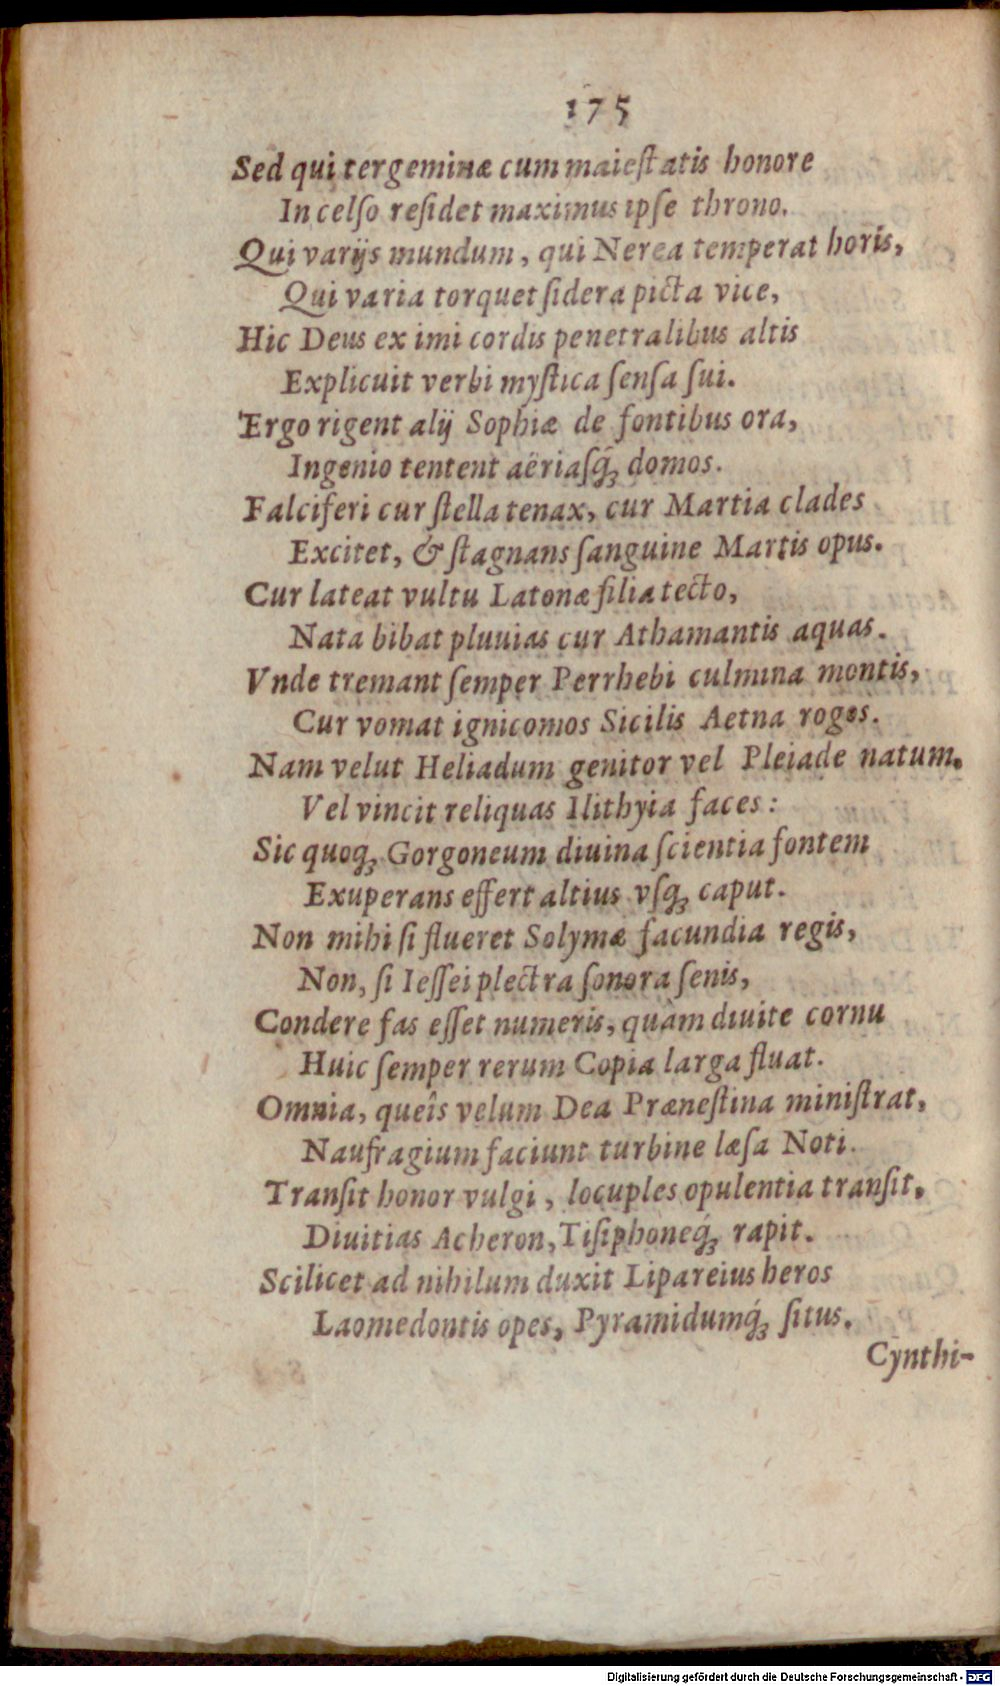 175
Sed qui tergeminæ cum maieſtatis honore
In celſo reſidet maximus ipſe throno.
Qui varijs mundum, qui Nerea temperat horis,
Qui varia torquet ſidera picta vice,
Hic Deus ex imi cordis penetralibus altis
Explicuit verbi myſtica ſenſa ſui.
Ergo rigent alij Sophiæ de fontibus ora,
Ingenio tentent aëriaſq́ꝫ domos.
Falciferi cur ſtella tenax, cur Martia clades
Excitet, & ſtagnans ſanguine Martis opus.
Cur lateat vultu Latonæ filia tecto,
Nata bibat pluuias cur Athamantis aquas.
Vnde tremant ſemper Perrhebi culmina montis,
Cur vomat ignicomos Sicilis Aetna rogos.
Nam velut Heliadum genitor vel Pleiade natum.
Vel vincit reliquas Ilithyia faces:
Sic quoqꝫ Gorgoneum diuina ſcientia fontem
Exuperans effert altius vſqꝫ caput.
Non mihi ſi flueret Solymæ facundia regis,
Non, ſi Ieſſei plectra ſonora ſenis,
Condere fas eſſet numeris, quàm diuite cornu
Huic ſemper rerum Copia larga fluat.
Omnia, queîs velum Dea Præneſtina miniſtrat,
Naufragium faciunt turbine læſa Noti.
Tranſit honor vulgi, locuples opulentia tranſit.
Diuitias Acheron, Tiſiphoneq́ꝫ rapit.
Scilicet ad nihilum duxit Lipareius heros
Laomedontis opes, Pyramidumq́ꝫ ſitus.
Cynthi-
Digitalisierung gefördert durch die Deutsche Forschungsgemeinschaft - DFG